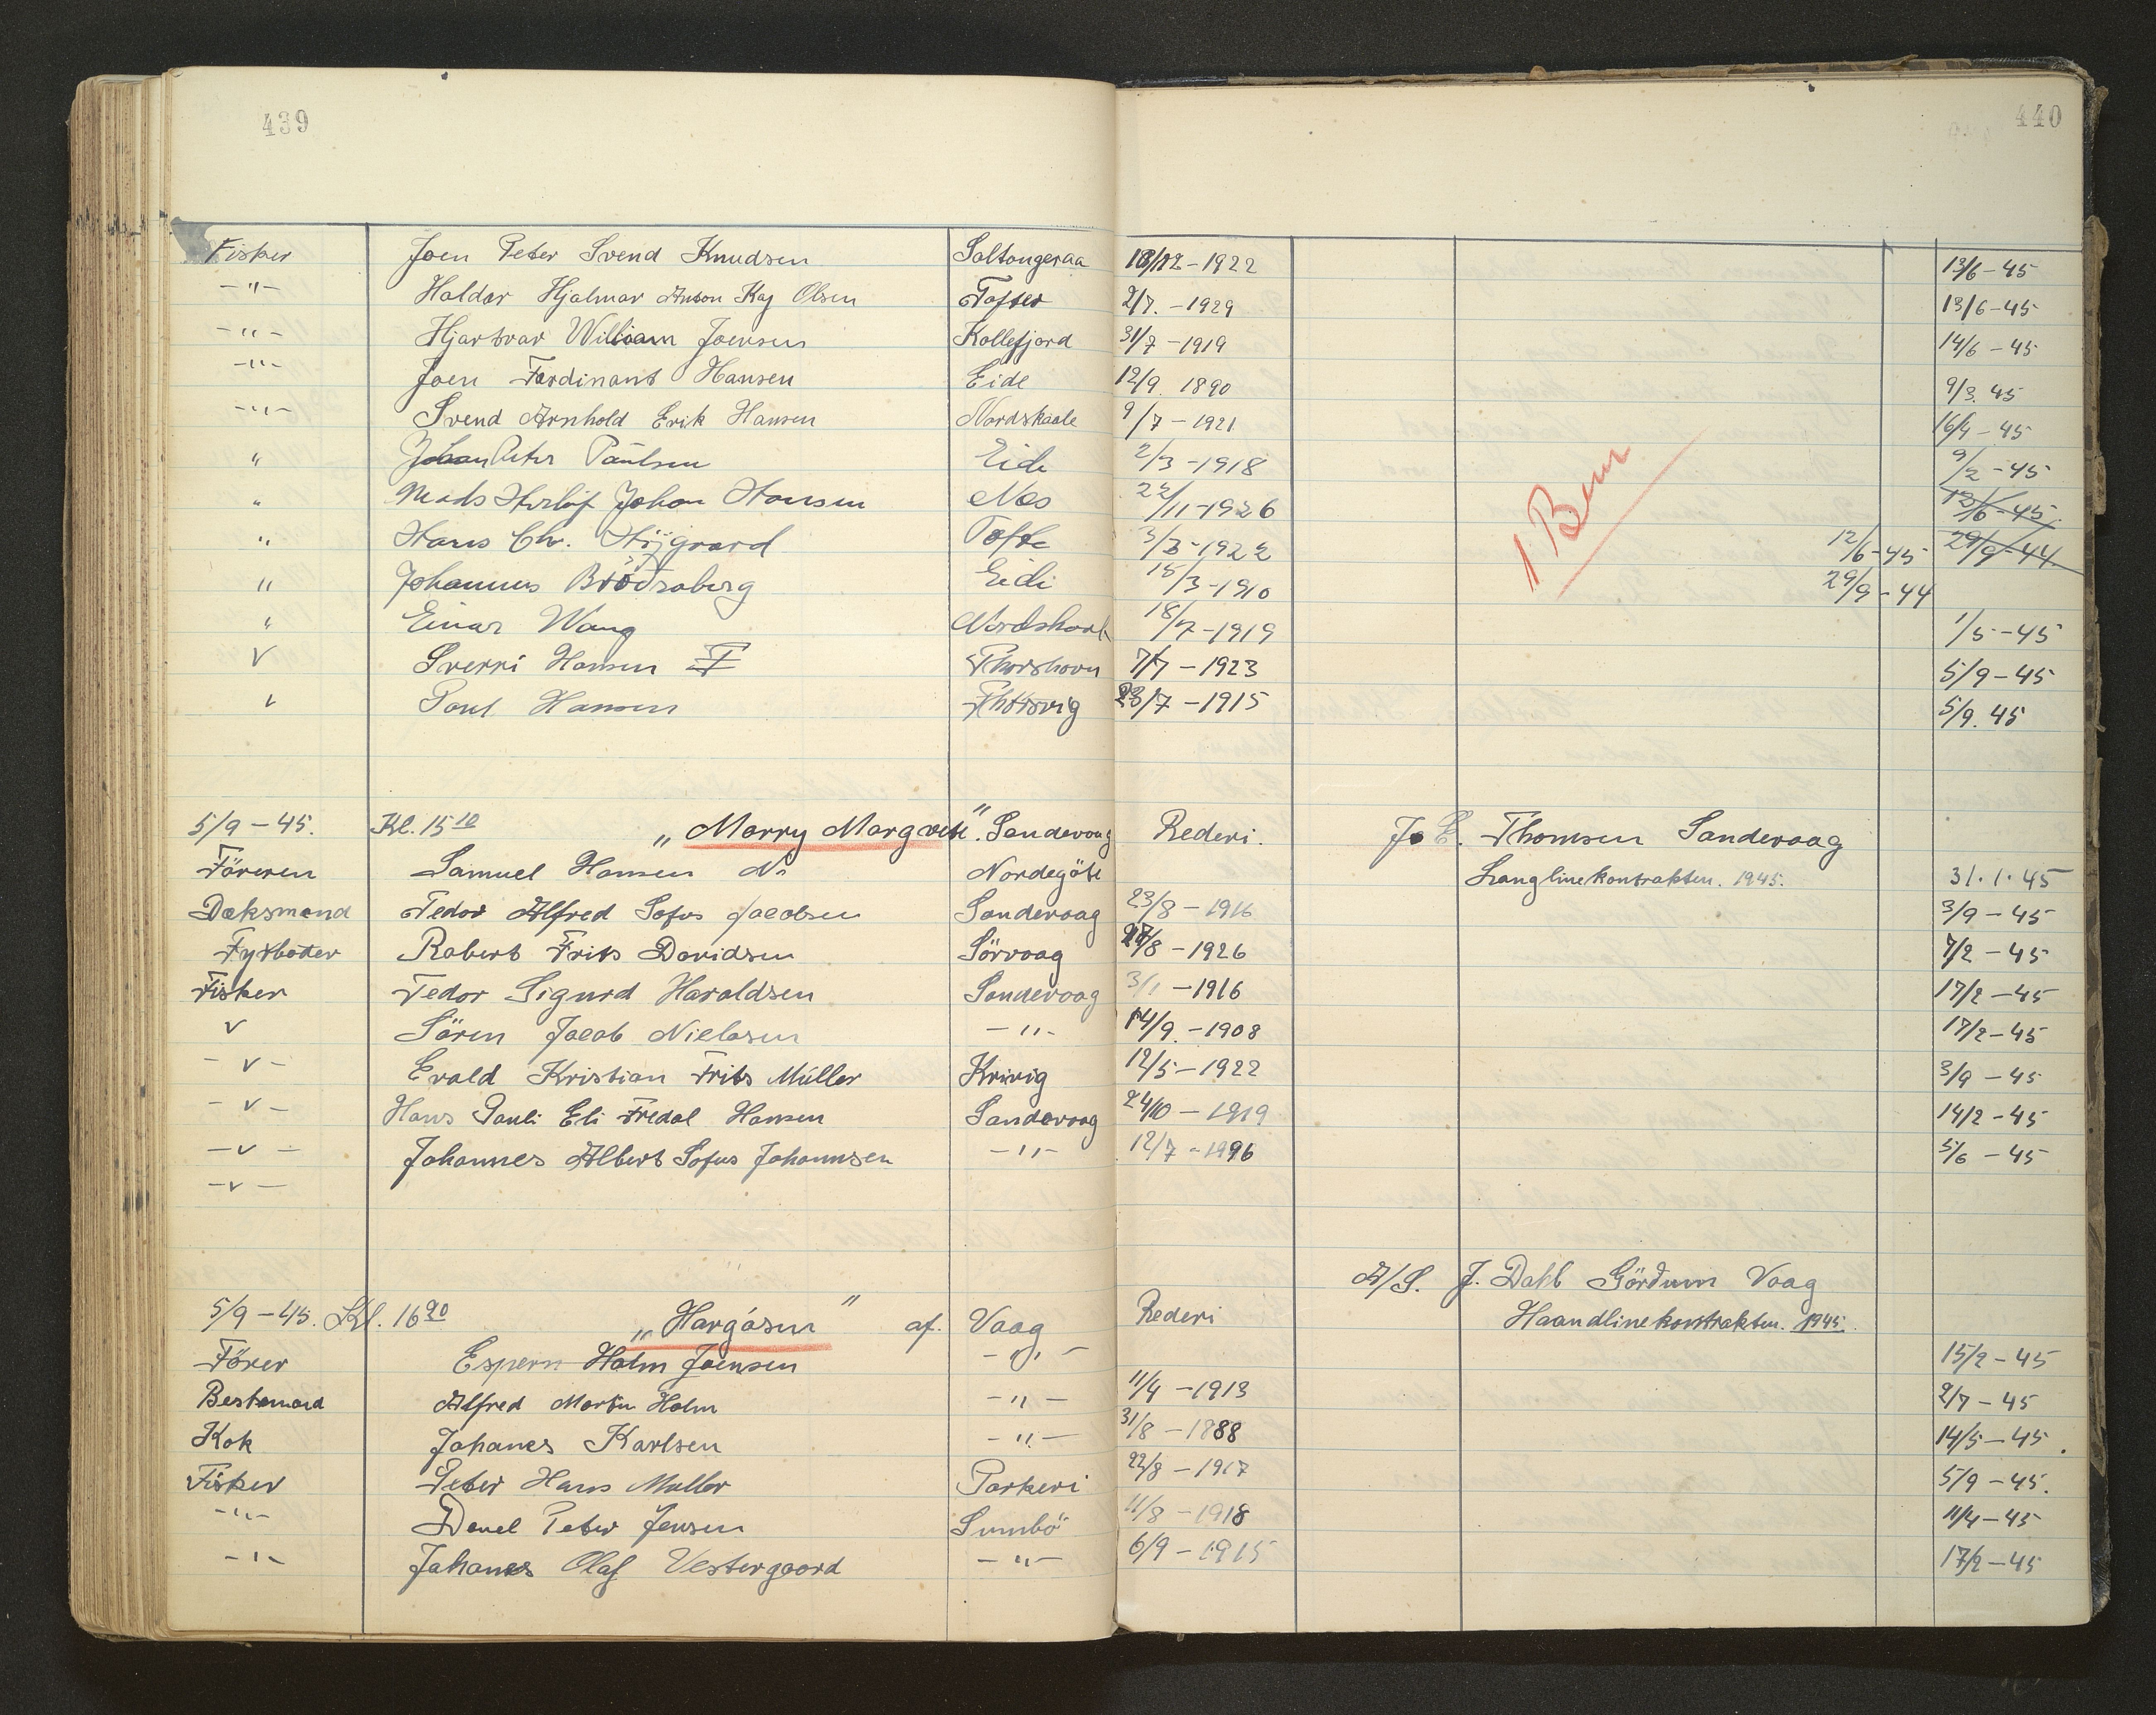 439
440
Fisker Joen Peter Svend Knudsen Saltongeraa 18/12-1922 13/6-45
-"- Haldor Hjalmar Anton Kaj Olsen Tofter 2/7.-1929 13/6-45
-"- Hjartvar William Joensen Kollefjord 31/7-1919 14/6-45
-"- Joen Ferdinant Hansen Eide 12/9 1890 9/3. 45
-"- Svend Arnhold Erik Hansen Nordskaale 9/7-1921 16/4-45
" Johan Peter Paulsen Eide 2/3-1918 9/2-45
" Mads Herlof Johan Hansen Nes 22/11-1926 13/6-45
" Hans Chr. Höjgaard Tofte 3/3-1922 12/6-45 29/9-44
" Johannus Brödraberg Eidi 15/3-1910 29/9-44
" Einar Wang 18/7-1919 1/5-45
V Sverri Hansen F Thorshovn 7/7-1923 5/9-45
v Poul Hansen Thorsvig 23/7-1915 5/9. 45
1 Bem
5/9-45. Kl. 15 10 "Marry Margrete". Sandevaag Rederi. Thomsen Sandevaag
Föreren Samuel Hansen Nordegöte Langlinekontrakten. 1945. 31.1.45
Daksmand Tedor Alfred Sofus Jacobsen Sandevaag 23/8-1916 3/9-45
Fyrböter Robert Frits Davidsen Sörvaag /8-1926 7/2-45
Fisker Tedor Sigurd Haraldsen Sandevaag 3/1-1916 17/2-45
v Sören Jacob Nielasen -"- 14/9.-1908 17/2-45
-v- Evald Kristian Frits Müller Krivig 12/5-1922 3/9-45
-v- Hans Pauli Eli Fredal Hansen Sandevaag 24/10-1919 14/2-45
-v- Johannes Albert Sofus Johannsen -"- 12/7- 5/6-45
-v-
A/S. J. Dahl Görðum Vaag
5/9-45. Kl. 16 20 "Hargásin" af. Vaag Rederi Haandlinekontrakten. 1945.
Förer Espern Holm Joensen -"- 15/2-45
Bestemand Alfred Martin Holm -"- 11/4-1913 2/7-45
Kok Johanes Karlsen -"- 31/8-1888 14/5-45.
Fisker Peter Hans Muller Porkeri 22/8-1917 5/9-45.
-"- Danel Peter Jensen Sumbö 11/8-1918 11/4-45
-"- Johanes Olaf Vestergaard -"- 6/9-1915 17/2-45